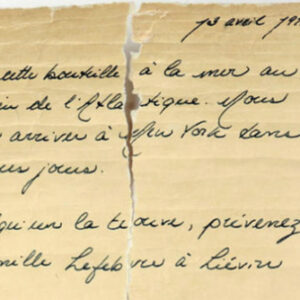 13 avril 191
cette bouteille à la mer au
in de l'Atlantique. Nous
arriver à New York dans
us jours.
qu'un la trouve, prévenez
mille Lefebvre à Liévin